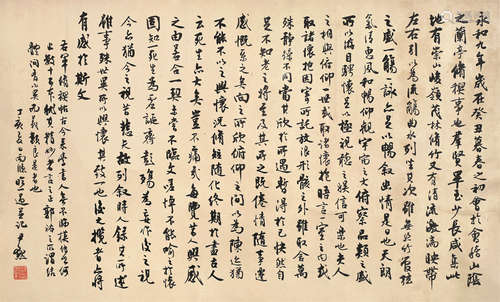 永和九年歲在癸丑暮春之初會於會稽山陰
之蘭亭脩禊事也群賢畢至少長咸集此
地有崇山峻嶺茂林脩竹又有清流激湍映帶
左右引以為流觴曲水列坐其次雖無絲竹管弦
之盛一觴一詠亦足以暢敘幽情是日也天朗
氣清惠風和暢仰觀宇宙之大俯察品類之盛
所以遊目騁懷足以極視聽之娛信可樂也夫人
之相與俯仰一世或取諸懷抱悟言一室之內或
因寄所託放浪形骸之外雖取舍萬
殊靜躁不同當其欣於所遇暫得於己快然自
足不知老之將至及其所之既倦情隨事遷
感慨係之矣向之所欣俯仰之間以為陳迹猶
不能不以之興懷況脩短隨化終期於盡古人
云死生亦大矣豈不痛哉每覽昔人興感
之由若合一契未嘗不臨文嗟悼不能喻之於懷
固知一死生為虛誕齊彭殤為妄作後之視
今亦猶今之視昔悲夫故列敘時人錄其所述
雖世殊事異所以興懷其致一也後之攬者亦將
有感於斯文
右軍脩禊敘古今善學書人莫不臨
丁亥 尹默